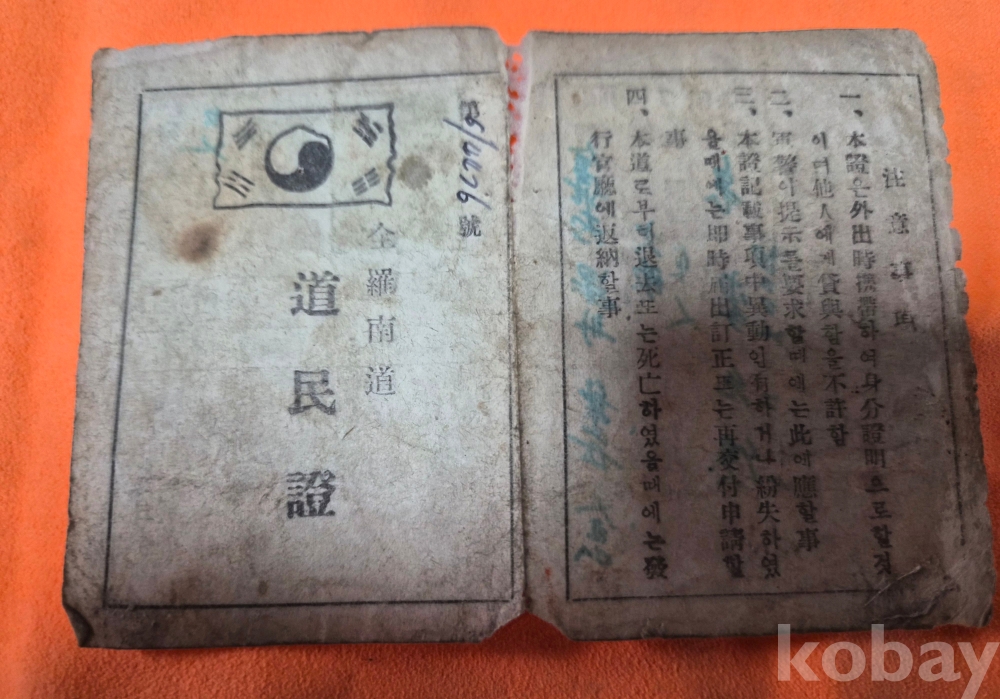 號
全羅南道
道民證
注意事項
一、本證은外出時携帶하여身分證明으로할것
이며他人에게貸與함을不許함
二、軍警이提示를要求할때에는此에應할事
三、本證記載事項中異動이有하거나紛失하였
을때에는即時 出訂正又는再交付申請할
事
四、本道로부터退去또는死亡하였음때에는發
行官廳에返納할事
kobay